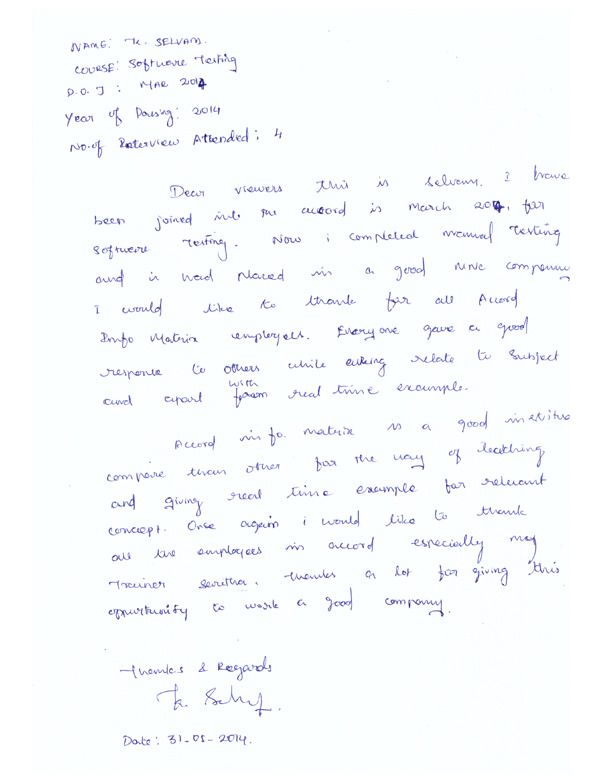 NAME: K. SELVAM.
COURSE: Software Testing
D.O.J : MAR 2014
Year of Passing: 2014
No.of Interview Attended: 4
Dear viewers this is selvam. I have
been joined into the accord is March 2014, for
Software Testing. Now i completed manual Testing
and i had placed in a good MNC company
I would like to thank for all Accord
Info Matrix employees. Everyone gave a good
response to others while asking relate to Subject
and apart from with real time example.
Accord info. matrix is a good institue
compare than other for the way of teaching
and giving real time example for relevant
concept. Once again i would like to thank
all the employees in accord especially my
Trainer Savitha. Thanks a lot for giving this
oppurtunity to work a good company.
Thanks & Regards
K. Selvam.
Date: 31-05-2014.